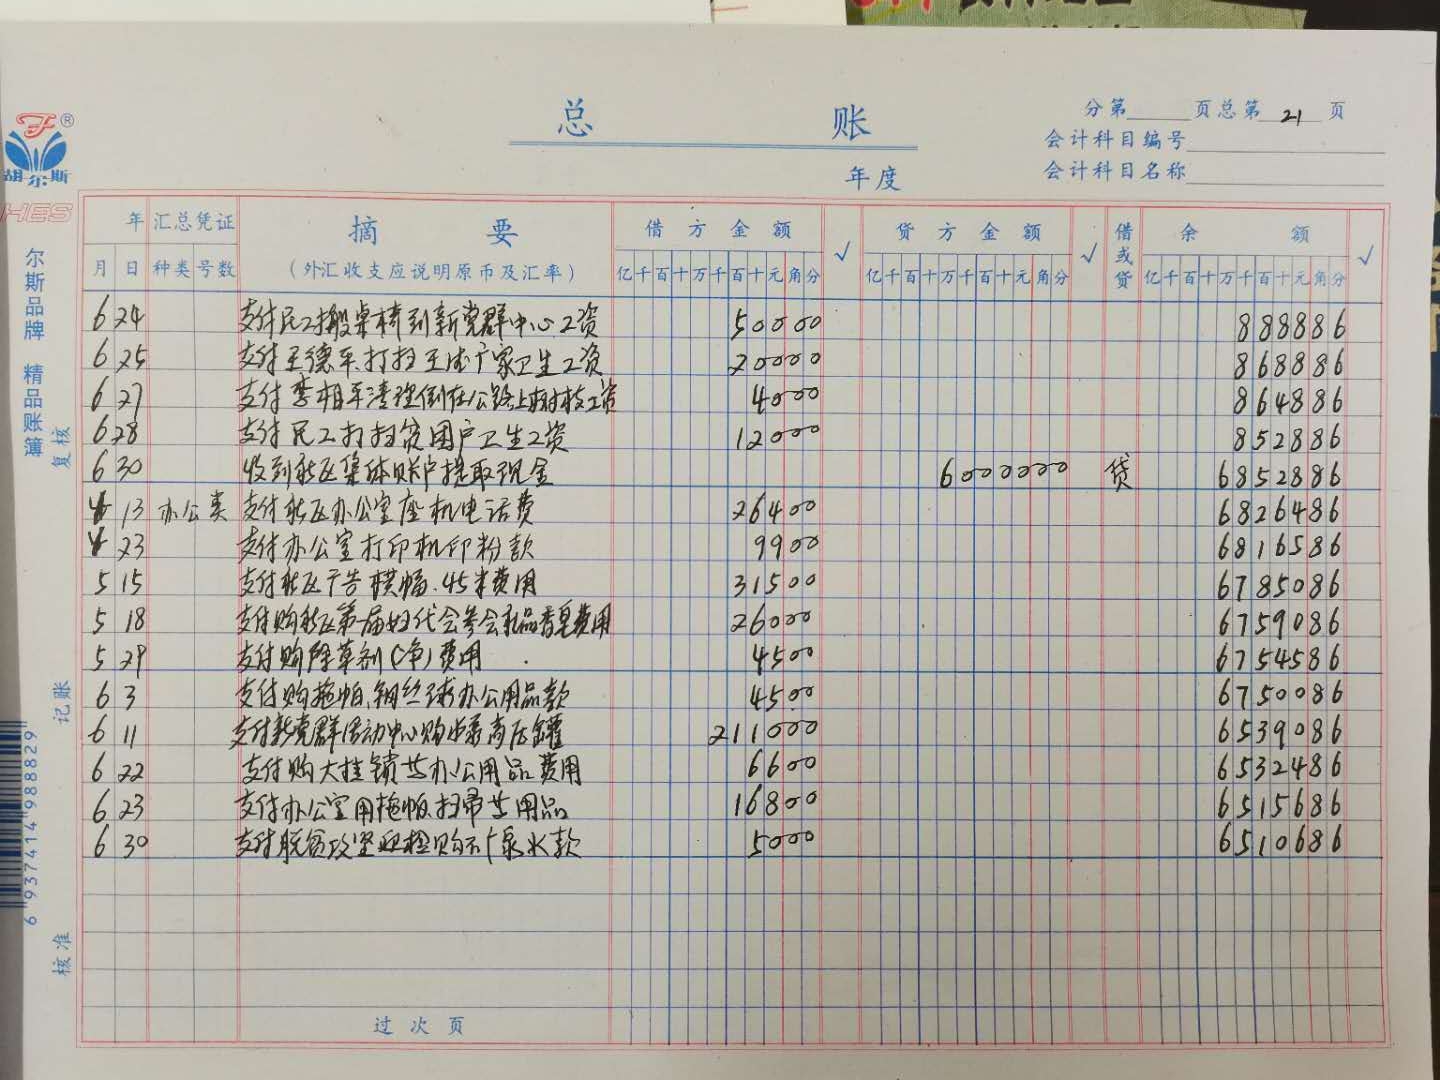 总 账
分第 页总第 21 页
会计科目编号
会计科目名称
年度
胡尔斯
HES
尔斯品牌 精品账簿
复核
记账
核准
6 937414 988829
年 汇总凭证 摘 要 借方金额 √ 贷方金额 √ 借或贷 余 额 √
月 日 种类 号数 (外汇收支应说明原币及汇率) 亿千百十万千百十元角分 亿千百十万千百十元角分 亿千百十万千百十元角分
6 24 支付民工搬桌椅到新党群中心工资 50000 888886
6 25 支付王德 打扫王 广家卫生工资 20000 868886
6 27 支付李相平清理倒在公路上树枝工资 4000 864886
6 28 支付民工打扫贫困户卫生工资 12000 852886
6 30 收到社区集体账户提取现金 6000000 贷 6852886
4 13 办公类 支付社区办公室座机电话费 26400 6826486
4 23 支付办公室打印机印粉款 9900 6816586
5 15 支付社区广告横幅.45米费用 31500 6785086
5 18 支付购社区第一届妇代会参会礼品香皂费用 26000 6759086
5 29 支付购除草剂( )费用 4500 6754586
6 3 支付购拖帕.钢丝球办公用品款 4500 6750086
6 11 支付新党群活动中心购水泵高压罐 211000 6539086
6 22 支付购大挂锁等办公用品费用 6600 6532486
6 23 支付办公室用拖帕.扫帚等用品 16800 6515686
6 30 支付脱贫攻坚迎检购 水款 5000 6510686
过次页